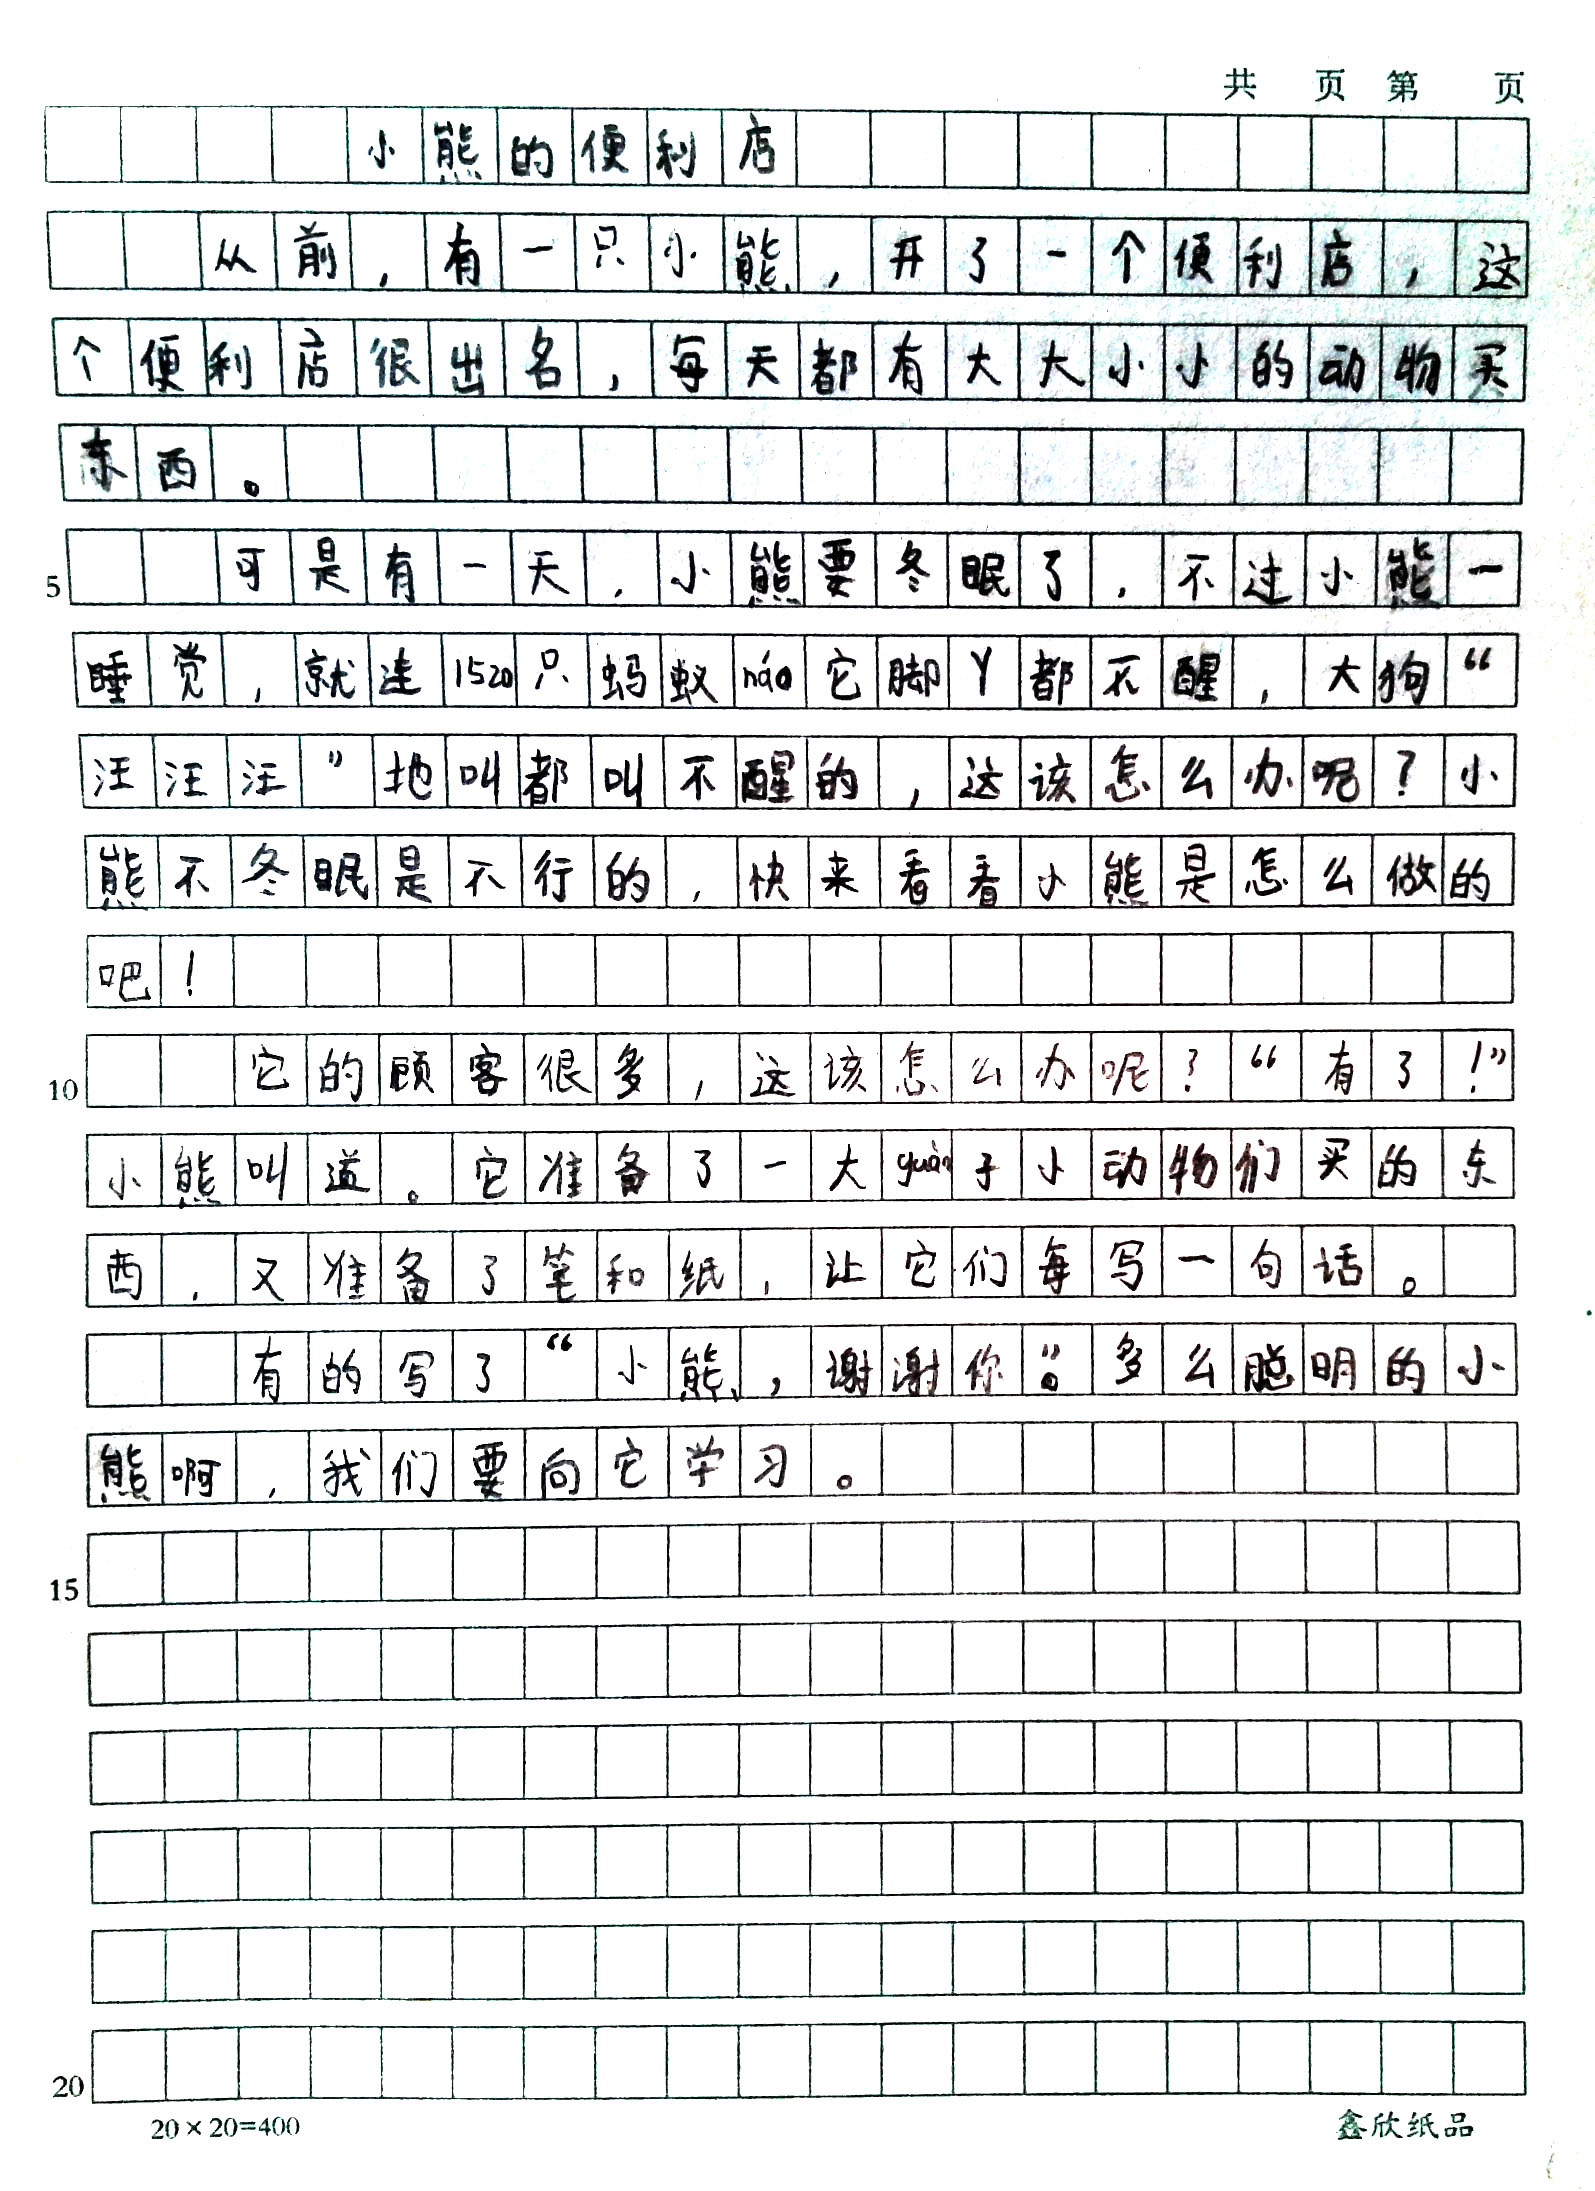 共 页 第 页
小熊的便利店
从前，有一只小熊，开了一个便利店，这
个便利店很出名，每天都有大大小小的动物买
东西。
5 可是有一天，小熊要冬眠了，不过小熊一
睡觉，就连1520只蚂蚁náo它脚丫都不醒，大狗“
汪汪汪”地叫都叫不醒的，这该怎么办呢？小
熊不冬眠是不行的，快来看看小熊是怎么做的
吧！
10 它的顾客很多，这该怎么办呢？“有了！”
小熊叫道。它准备了一大yuàn子小动物们买的东
西，又准备了笔和纸，让它们每写一句话。
有的写了“小熊，谢谢你”。多么聪明的小
熊啊，我们要向它学习。
15
20
20×20=400 鑫欣纸品